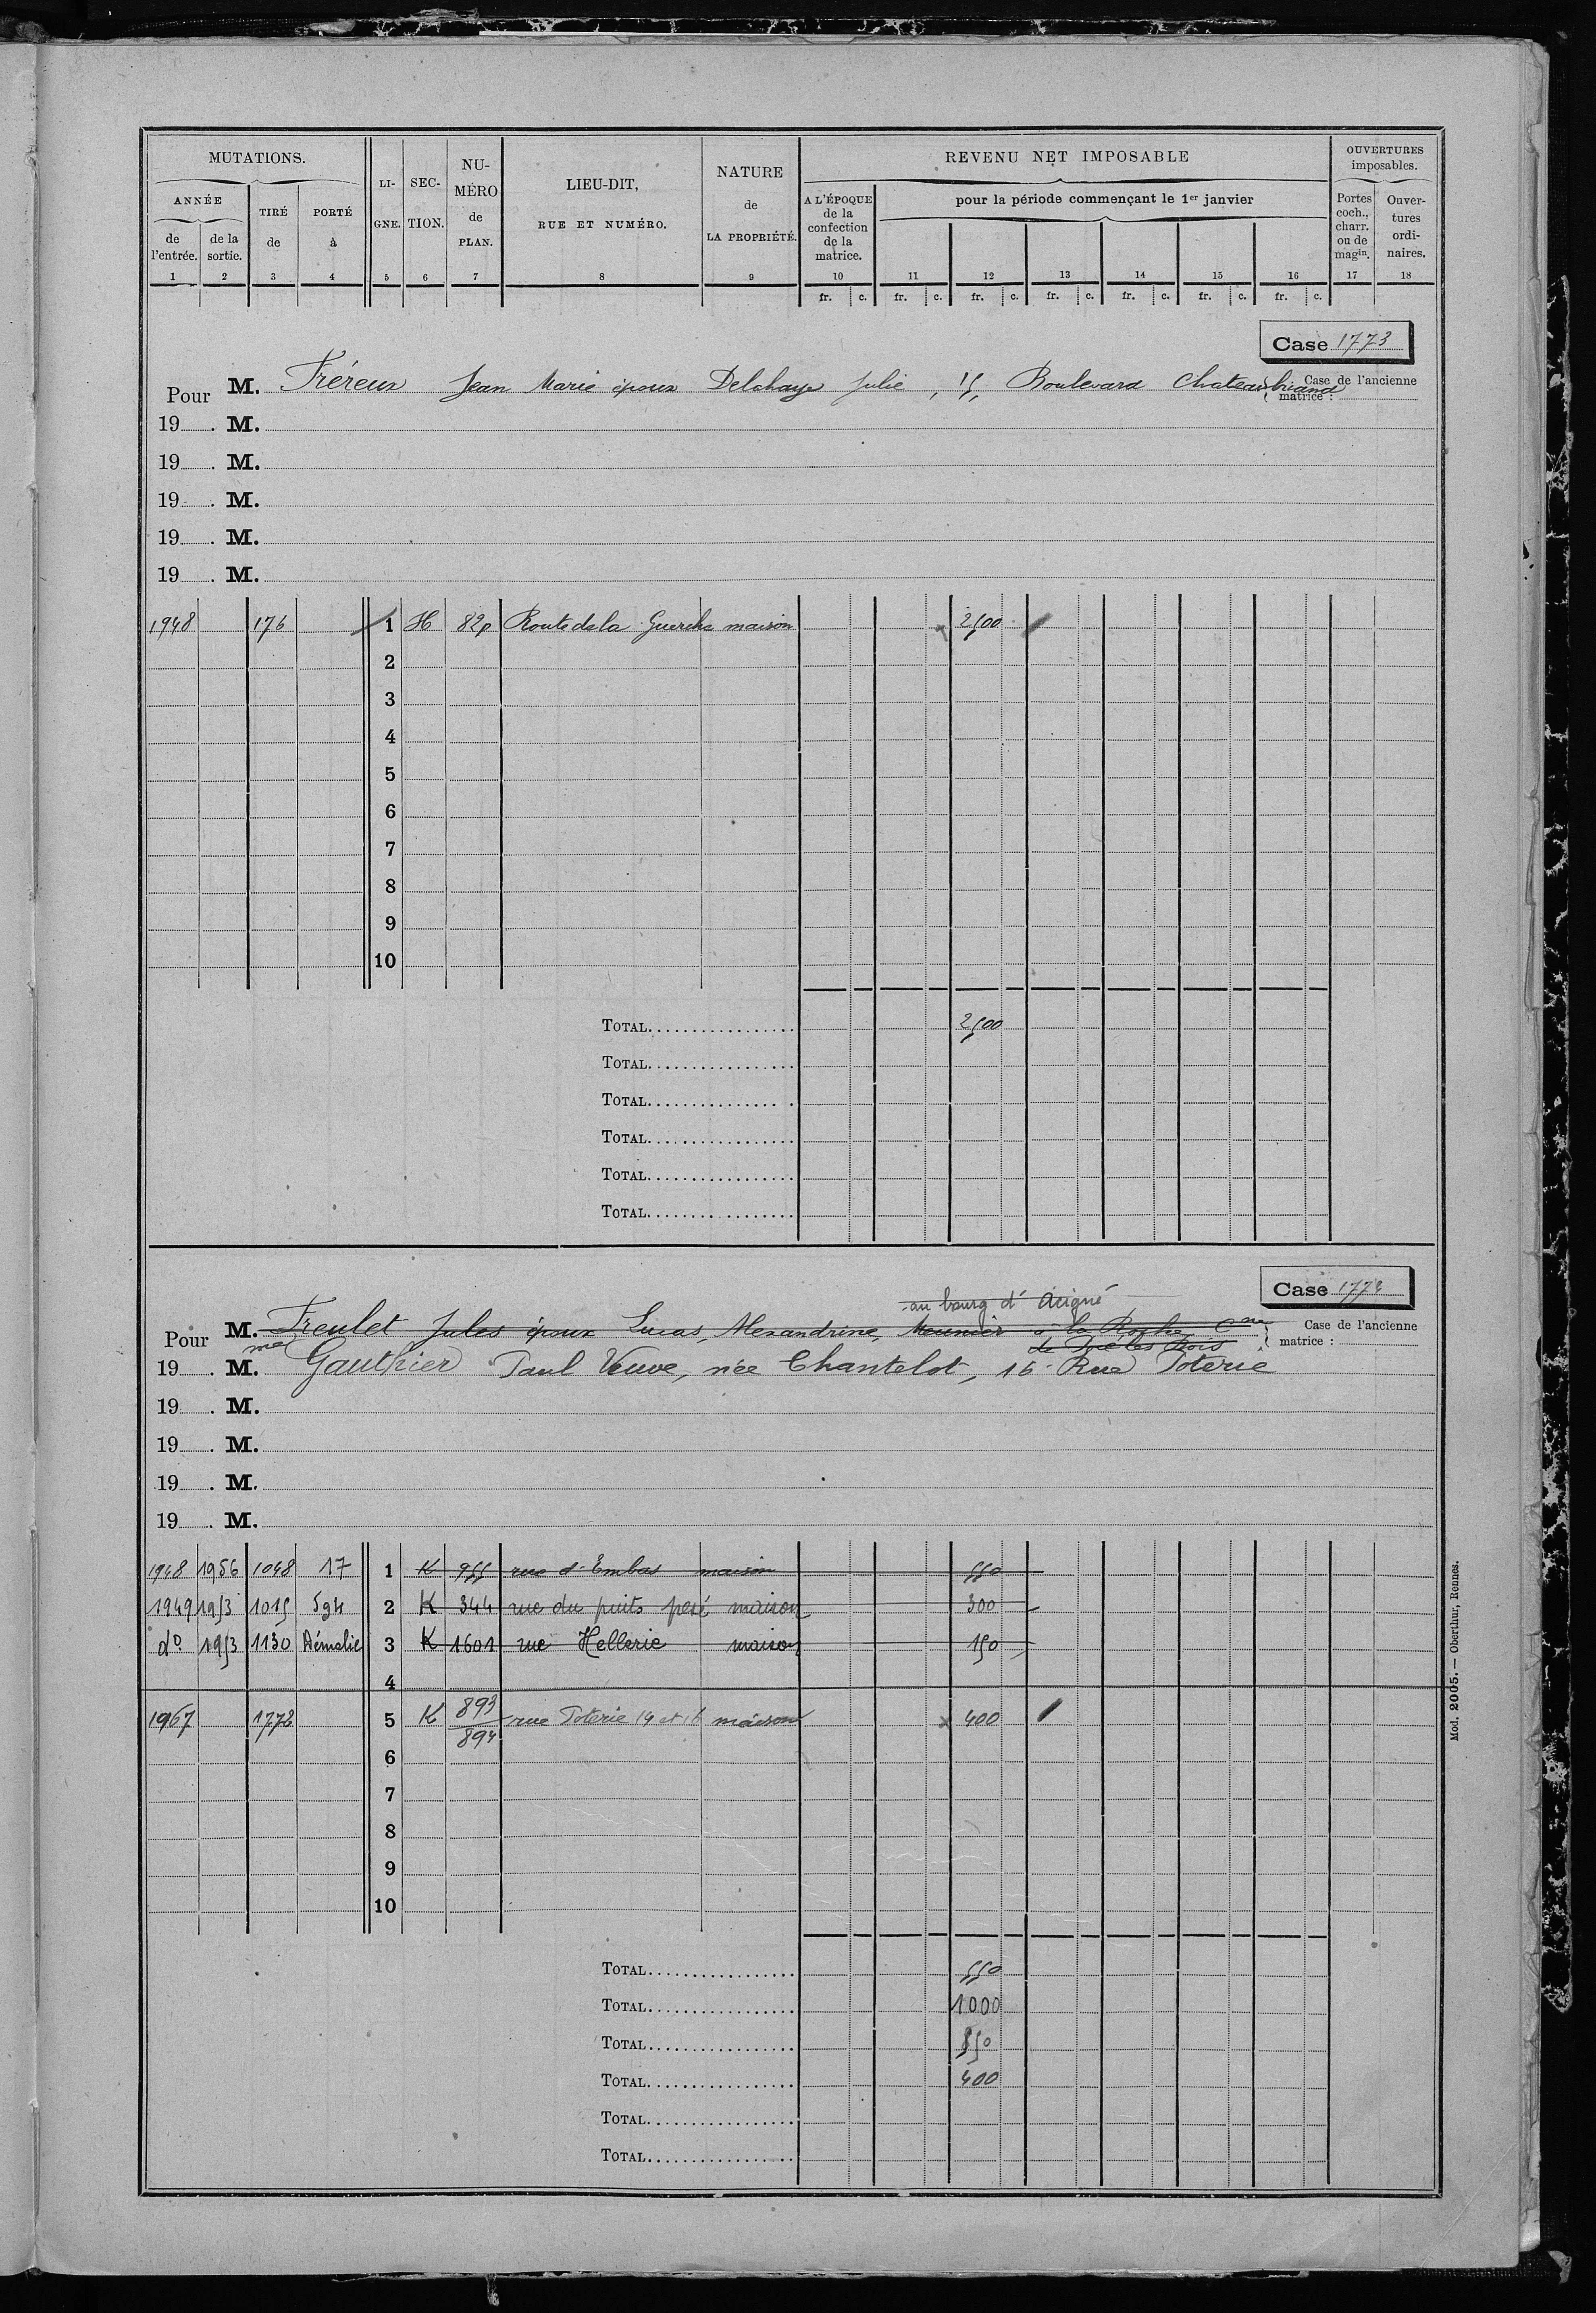 MUTATIONS.
ANNÉE
de l'entrée. de la sortie. TIRÉ de PORTÉ à LIGNE. SECTION. NUMÉRO de PLAN. LIEU-DIT, RUE ET NUMÉRO. NATURE de LA PROPRIÉTÉ.
REVENU NET IMPOSABLE
A L'ÉPOQUE de la confection de la matrice. pour la période commençant le 1er janvier
OUVERTURES imposables.
Portes coch., charr. ou de magin. Ouvertures ordinaires.
1 2 3 4 5 6 7 8 9 10 11 12 13 14 15 16 17 18
fr. c. fr. c. fr. c. fr. c. fr. c. fr. c. fr. c.
Case 1773
Pour M. Fréreux Jean Marie époux Delahaye Julie, 15, Boulevard Chateaubriand
Case de l'ancienne matrice :
19 . M.
19 . M.
19 . M.
19 . M.
19 . M.
1948 176 1 H 82p Route de la Guerche maison 2500
2
3
4
5
6
7
8
9
10
TOTAL 2500
TOTAL
TOTAL
TOTAL
TOTAL
TOTAL
Case 1774
au bourg d'Acigné
Pour M. Freulet Jules époux Lucas, Alexandrine, Meunier à la Roche Cne
Case de l'ancienne matrice :
19 . M. me Gauthier Paul Veuve, née Chantelot, 16 Rue Poterie
19 . M.
19 . M.
19 . M.
19 . M.
1948 1956 1048 17 1 K 955 rue d'Embas maison 550
1949 1953 1015 594 2 K 344 rue du puits pesé maison 300
do 1953 1130 Démolie 3 K 1601 rue Hellerie maison 150
4
1967 1772 5 K 893/894 rue Poterie 14 et 16 maison 400
6
7
8
9
10
TOTAL 550
TOTAL 1000
TOTAL 850
TOTAL 400
TOTAL
TOTAL
Mod. 2005. — Oberthur, Rennes.